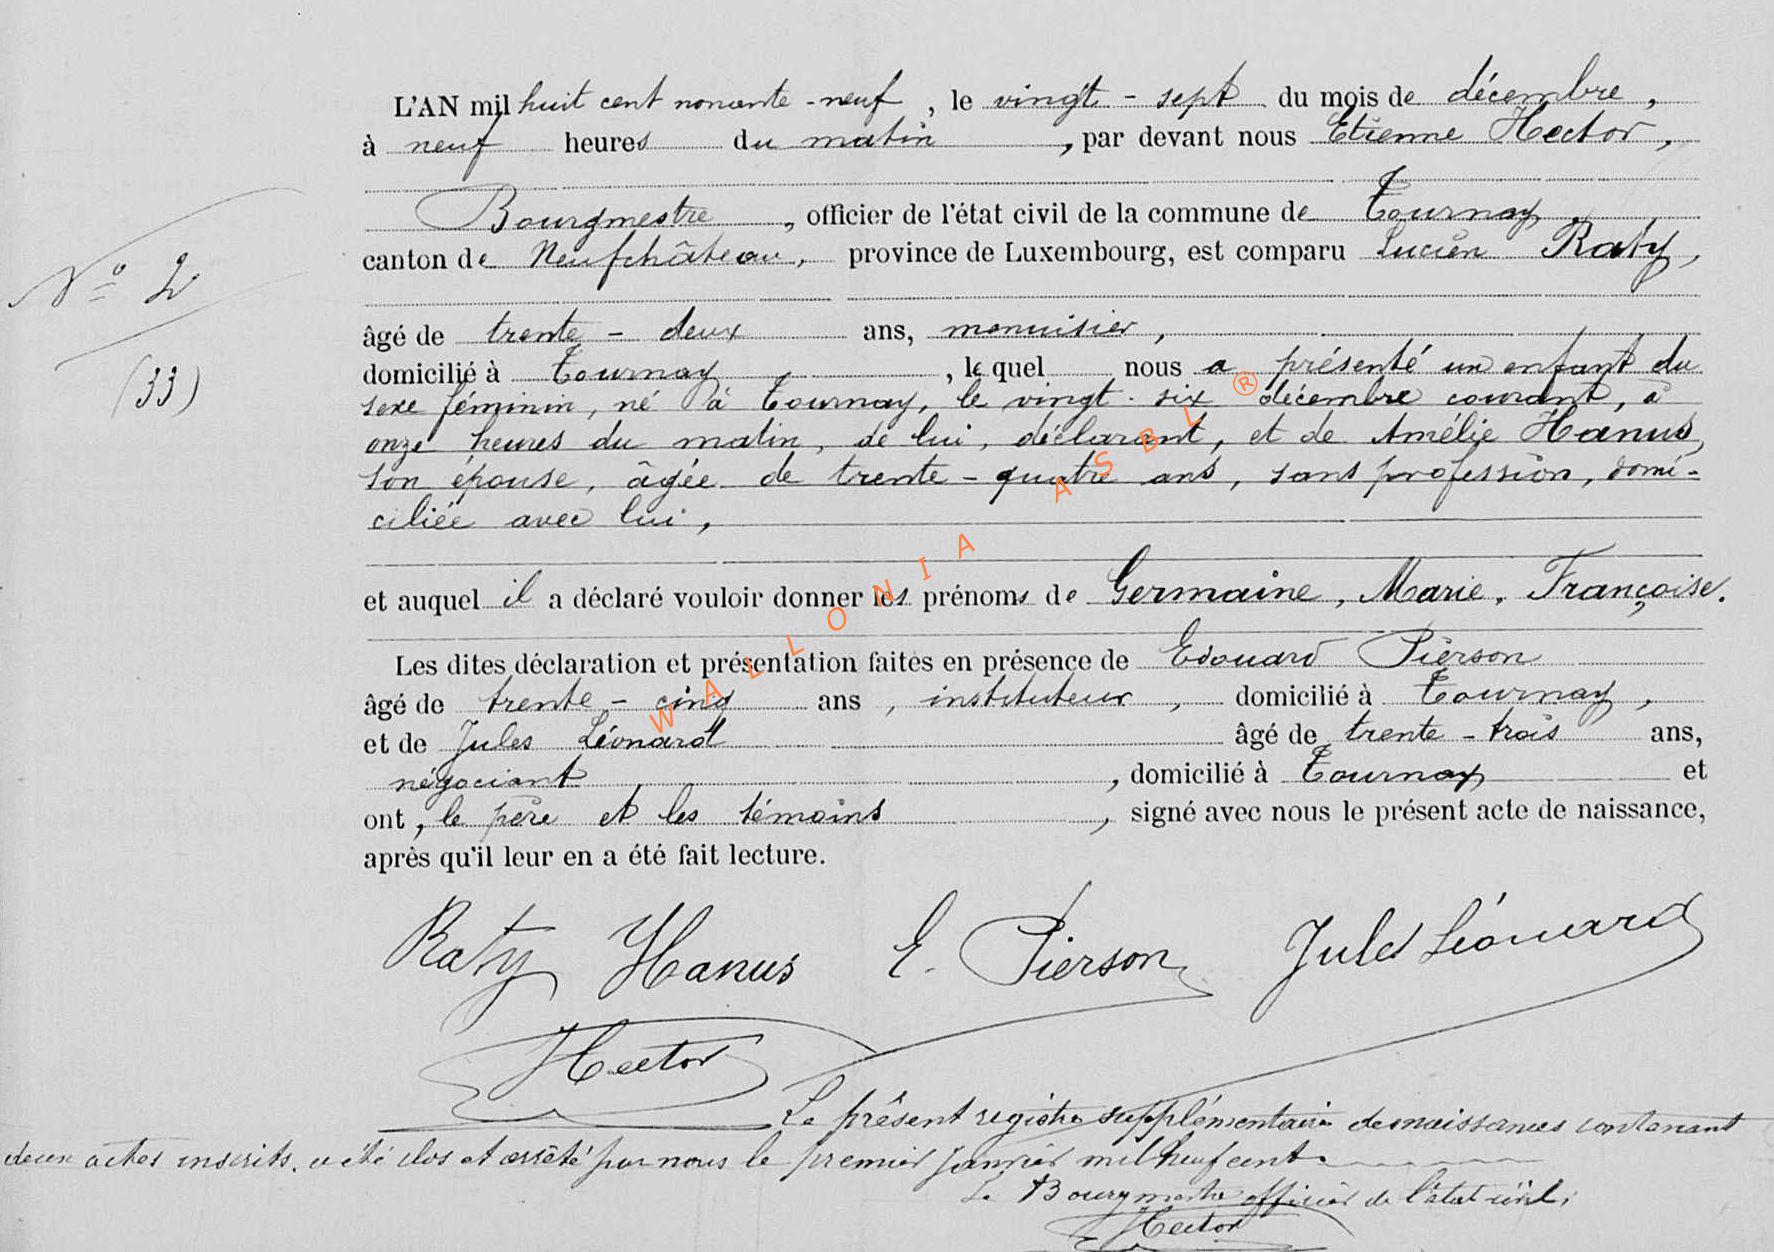 L'AN mil huit cent nonante-neuf, le vingt-sept du mois de décembre,
à neuf heures du matin, par devant nous Etienne Hector,
Bourgmestre, officier de l'état civil de la commune de Tournay,
canton de Neufchâteau, province de Luxembourg, est comparu Lucien Raty,
N° 2
âgé de trente-deux ans, menuisier,
(33)
domicilié à Tournay, lequel nous a présenté un enfant du
sexe féminin, né à Tournay, le vingt-six décembre courant, à
onze heures du matin, de lui, déclarant, et de Amélie Hanus,
son épouse, âgée de trente-quatre ans, sans profession, domi-
ciliée avec lui,
et auquel il a déclaré vouloir donner les prénoms de Germaine, Marie, Françoise.
Les dites déclaration et présentation faites en présence de Edouard Pierson
âgé de trente-cinq ans, instituteur, domicilié à Tournay,
et de Jules Léonard âgé de trente-trois ans,
négociant, domicilié à Tournay et
ont, le père et les témoins, signé avec nous le présent acte de naissance,
après qu'il leur en a été fait lecture.
Raty Hanus E. Pierson Jules Léonard
Hector
Le présent registre supplémentaire de naissances contenant
deux actes inscrits, a été clos et arrêté par nous le premier janvier mil neuf cent.
Le Bourgmestre officier de l'état civil,
Hector
WALLONIA ASBL ®